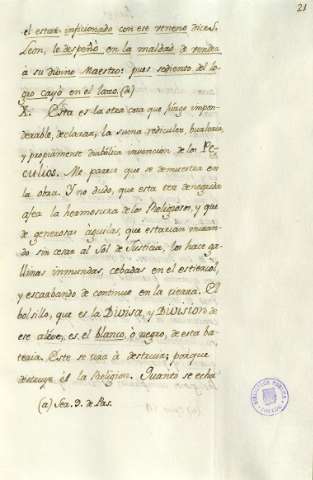 21
el estar inficionado con ese veneno dice S.
Leon, le despeñó en la maldad de vender
à su divino Maestro: pues sediento del lo-
gro cayó en el lazo. (a)
X. Esta es la otra cosa que juzgo impon-
derable, declarar, la suma ridicular, burlaria,
y propiamente diabólica invencion de los Pe-
culios. Me parece que se demuestra en
la obra. Y no dudo, que esta tez denegrida
afea la hermosura de los Religiosos, y que
de generosas àguilas, que estarian miran-
do sin cesar al Sol de Justicia, los hace ga-
llinas inmundas, cebadas en el estiercol,
y escarbando de continuo en la tierra. El
bolsillo, que es la Divisa, y Division de
ese aleve, es el blanco, ò negro, de esta ba-
teria. Este se tira à destruir; porque
destruye èl la Religion. Quanto se echa
(a) Ser. 9. de Pas.
BIBLIOTECA PUBLICA